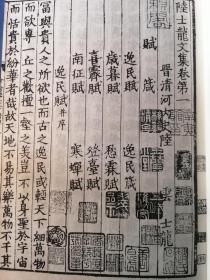 陸士龍文集卷第一
晉清河內史陸 雲 士龍
賦 箴
逸民賦 逸民箴
歲暮賦 愁霖賦
喜霽賦 登臺賦
南征賦 寒蟬賦
逸民賦 并序
富與貴人之所欲也而古之逸民或輕天下細萬物
而欲專一丘之歡擅一壑之美豈不以身聖於宇宙
而恬貴於紛華者哉故天地不易其樂萬物不干其